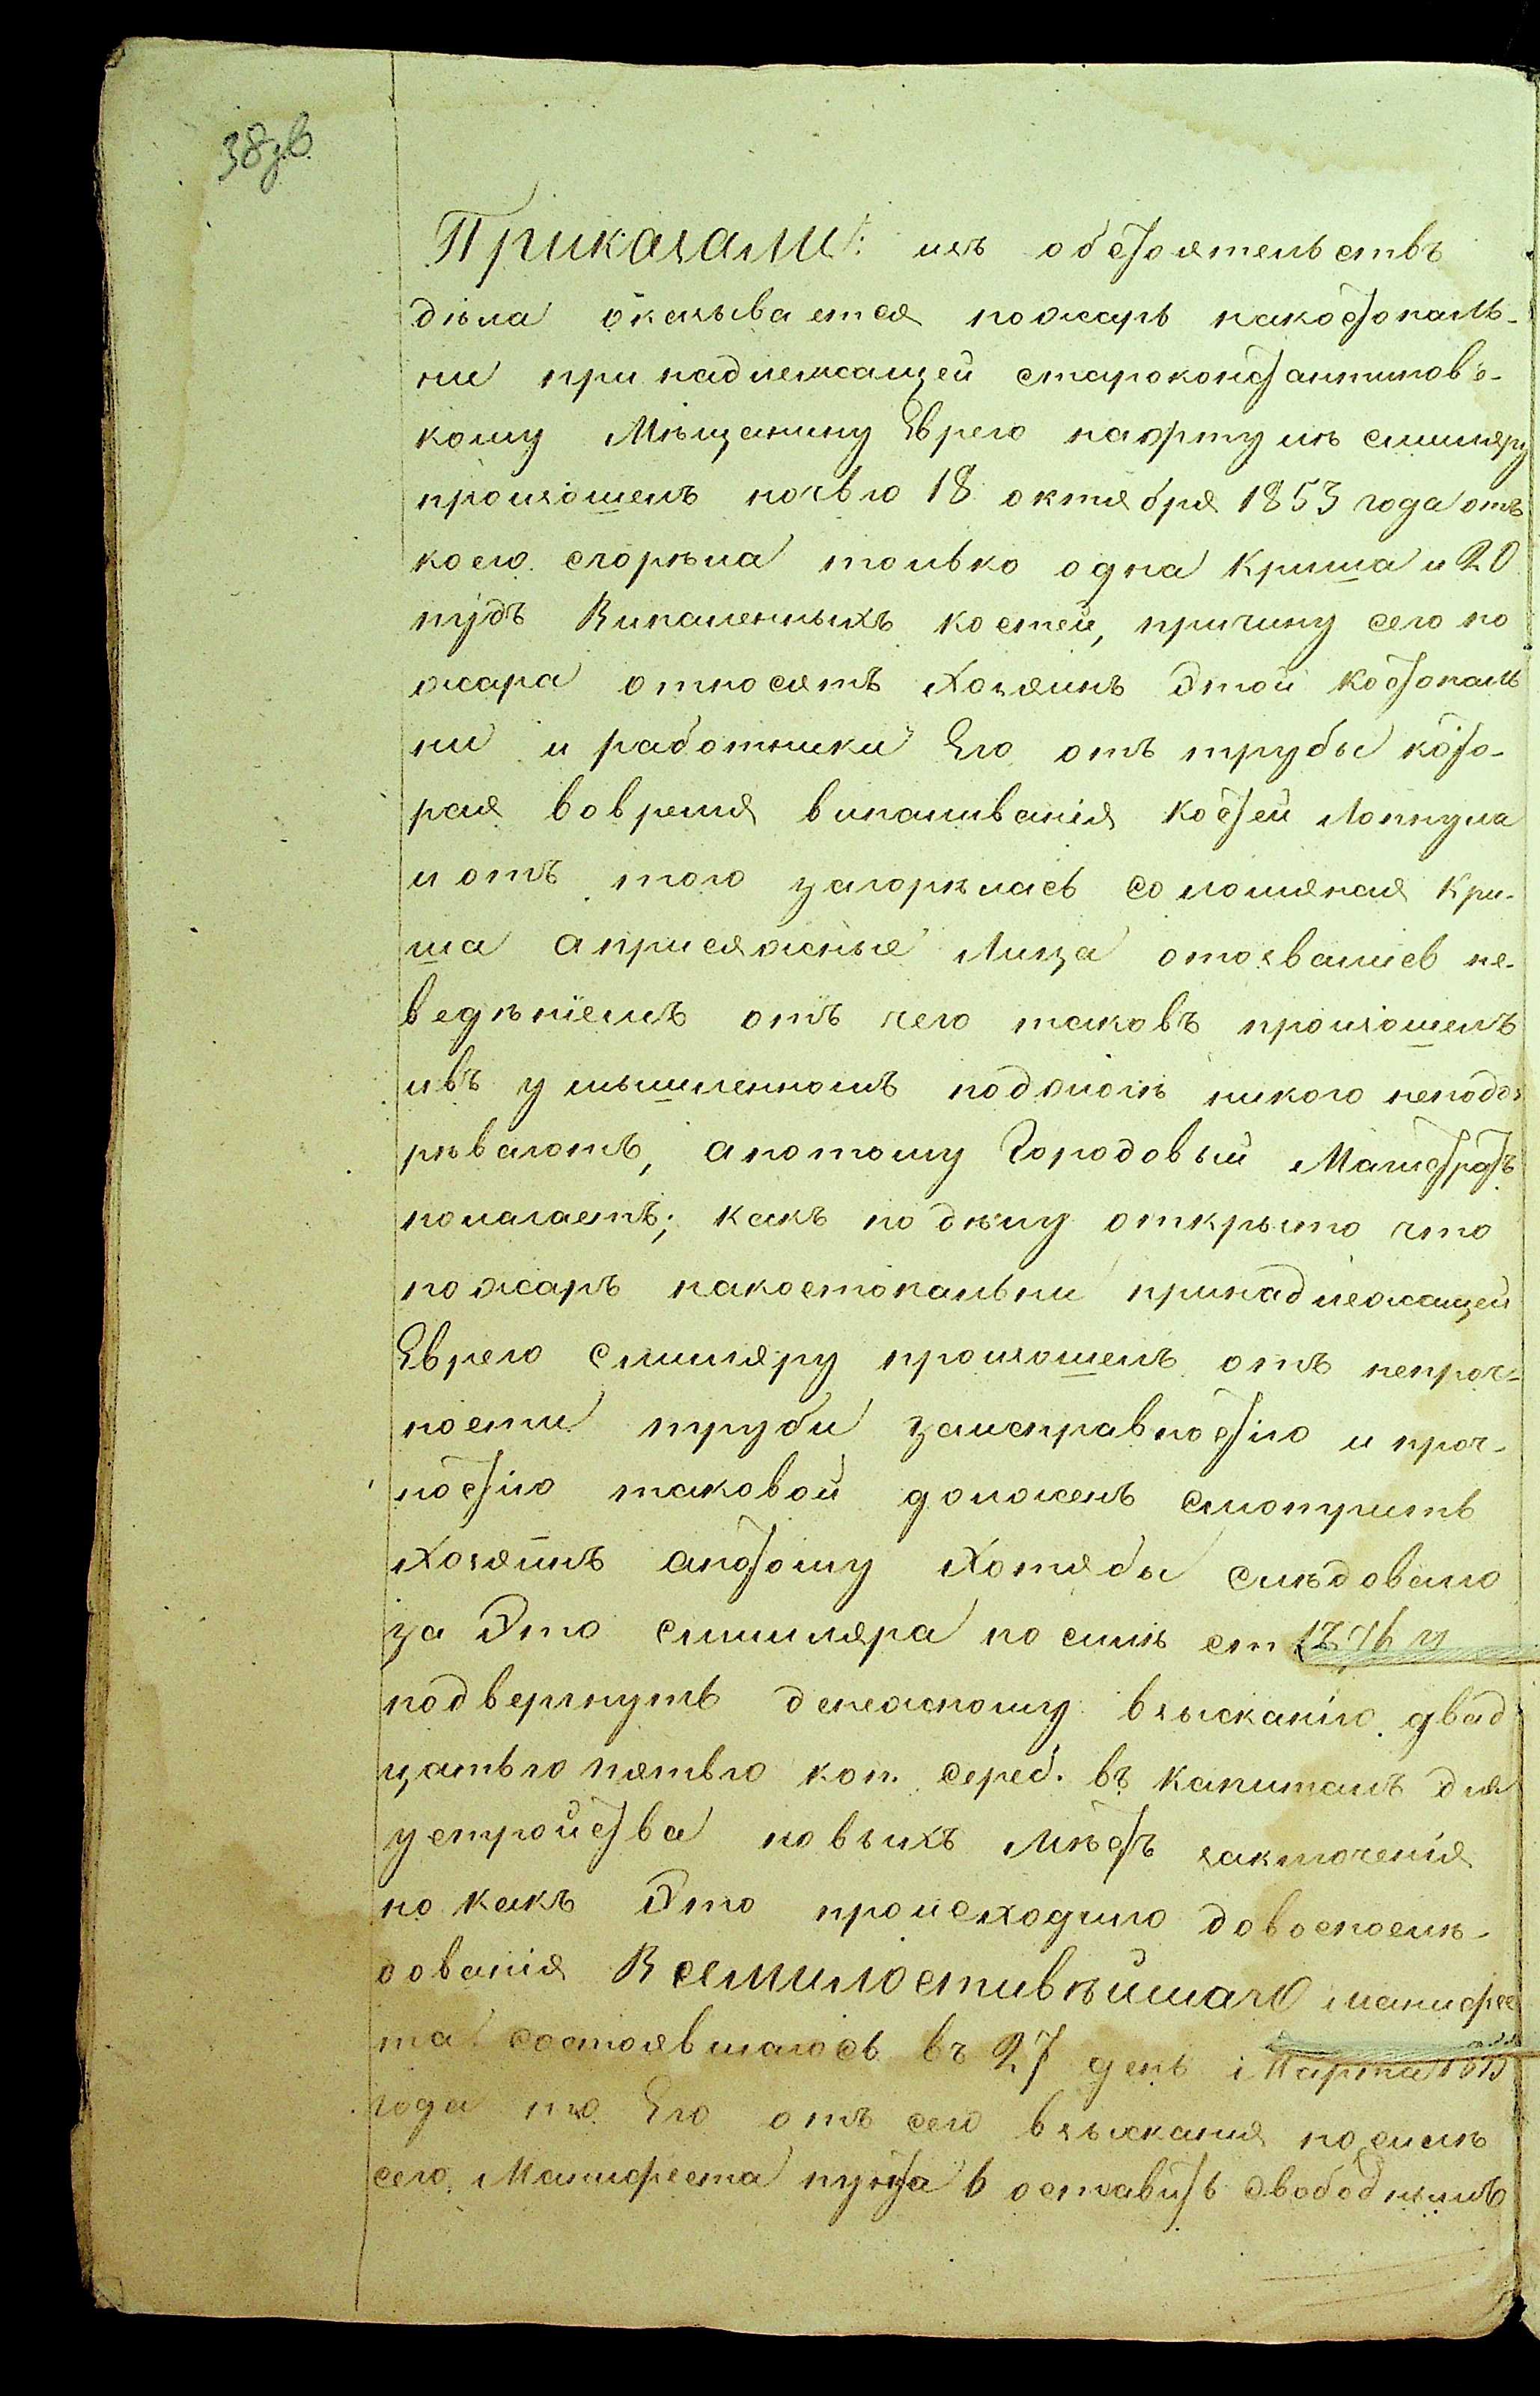 38 зв
Приказали: изъ обстоятельствъ
дѣла оказывается пожаръ накостопаль-
ни принадлежащей староконстантиновъ-
кому Мѣщанину Еврею
произошелъ ночью 18 октября 1853 года отъ
коего сгорѣла только одна Криша и 20
пудъ Випаленныхъ костей, причину сего по
жара относятъ Хозяинъ Этой костопаль
ни и работники Его отъ трубы кото-
рая вовремя випаливанія костей Лопнула
и отъ того загорѣлась соломяная Кри-
ша априсяжные Лица отозвались не-
ведѣніемъ отъ чего таковъ произошелъ
ивъ умышленномъ поджогѣ никого неподоз
рѣваютъ, апотому Городовый Магистратъ
полагаетъ; какъ по дѣлу открыто что
пожаръ накостопальни принадлежащей
Еврею Смиляру произошелъ отъ непроч-
ности труби заисправностію и проч-
ностію таковой доложенъ смотрить
Хозяинъ апотому Хотябы слѣдовало
за Это смиляра по силѣ ст 1276 у
подвергнуть денежному взысканію двад
цатью пятью коп. сереб. въ Капиталъ для
устройства новыхъ мѣстъ заключенія
но какъ Это происходило довоспослѣ-
дованія Всемилостивѣйшаго манифес
та состоявшагось въ 27 день Марта 1855
года то Его отъ сего взысканія по силѣ
сего Манифеста пункта 6 оставить свободнымъ